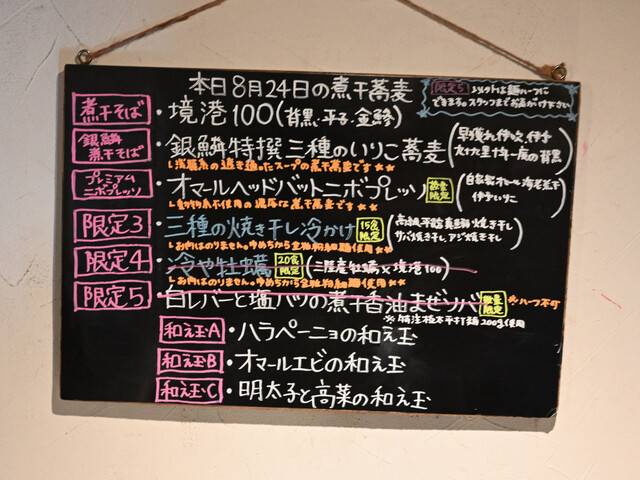 本日8月24日の煮干蕎麦
限定5 以外は麺ハーフに
できます。スタッフまでお声がけ下さい
煮干そば ・境港100(背黒・平子・金鯵)
銀鱗煮干そば ・銀鱗特撰三種のいりこ蕎麦
淡麗系の透き通ったスープの煮干蕎麦です☆☆
プレミアムニボプレッソ ・オマールヘッドバットニボプレッソ 数量限定
動物系不使用の濃厚な煮干蕎麦です☆☆
限定3 ・三種の焼き干し冷かけ 15食限定 (高級平舘真鰯焼き干し サバ焼き干し アジ焼き干し)
お肉はのりません。ゆめちから全粒粉細麺使用☆☆
限定4 ・冷や牡蠣 20食限定 (三陸産牡蠣×境港100)
お肉はのりません。ゆめちから全粒粉細麺使用☆☆
限定5 ・白レバーと塩パツの煮干香油まぜソバ 数量限定 ※ハーフ不可
※特注極太平打麺200g使用
和え玉A ・ハラペーニョの和え玉
和え玉B ・オマールエビの和え玉
和え玉C ・明太子と高菜の和え玉